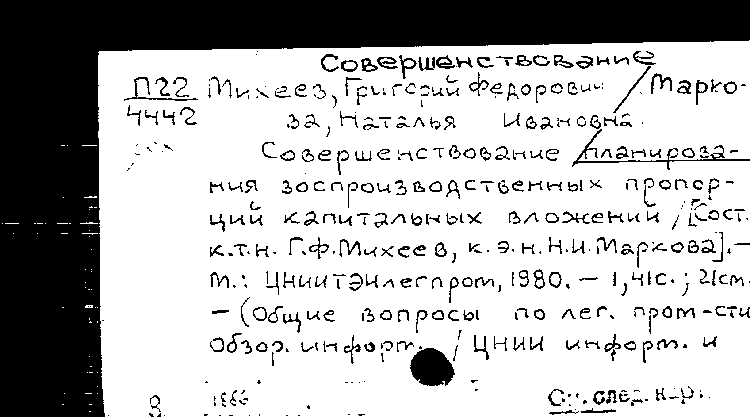 Совершенствование
П22 Михеев, Григорий Федорович / Марко-
4442 ва, Наталья Ивановна.
Совершенствование / планирова-
ния воспроизводственных пропор-
ций капитальных вложений / [Сост.
к.т.н. Г.Ф.Михеев, к.э.н. Н.И.Маркова]. –
М.: ЦНИИТЭИлегпром, 1980. – 1,41с.; 21см.
– (Общие вопросы по лег. пром-сти
Обзор. информ. / ЦНИИ информ. и
См. след. карт.